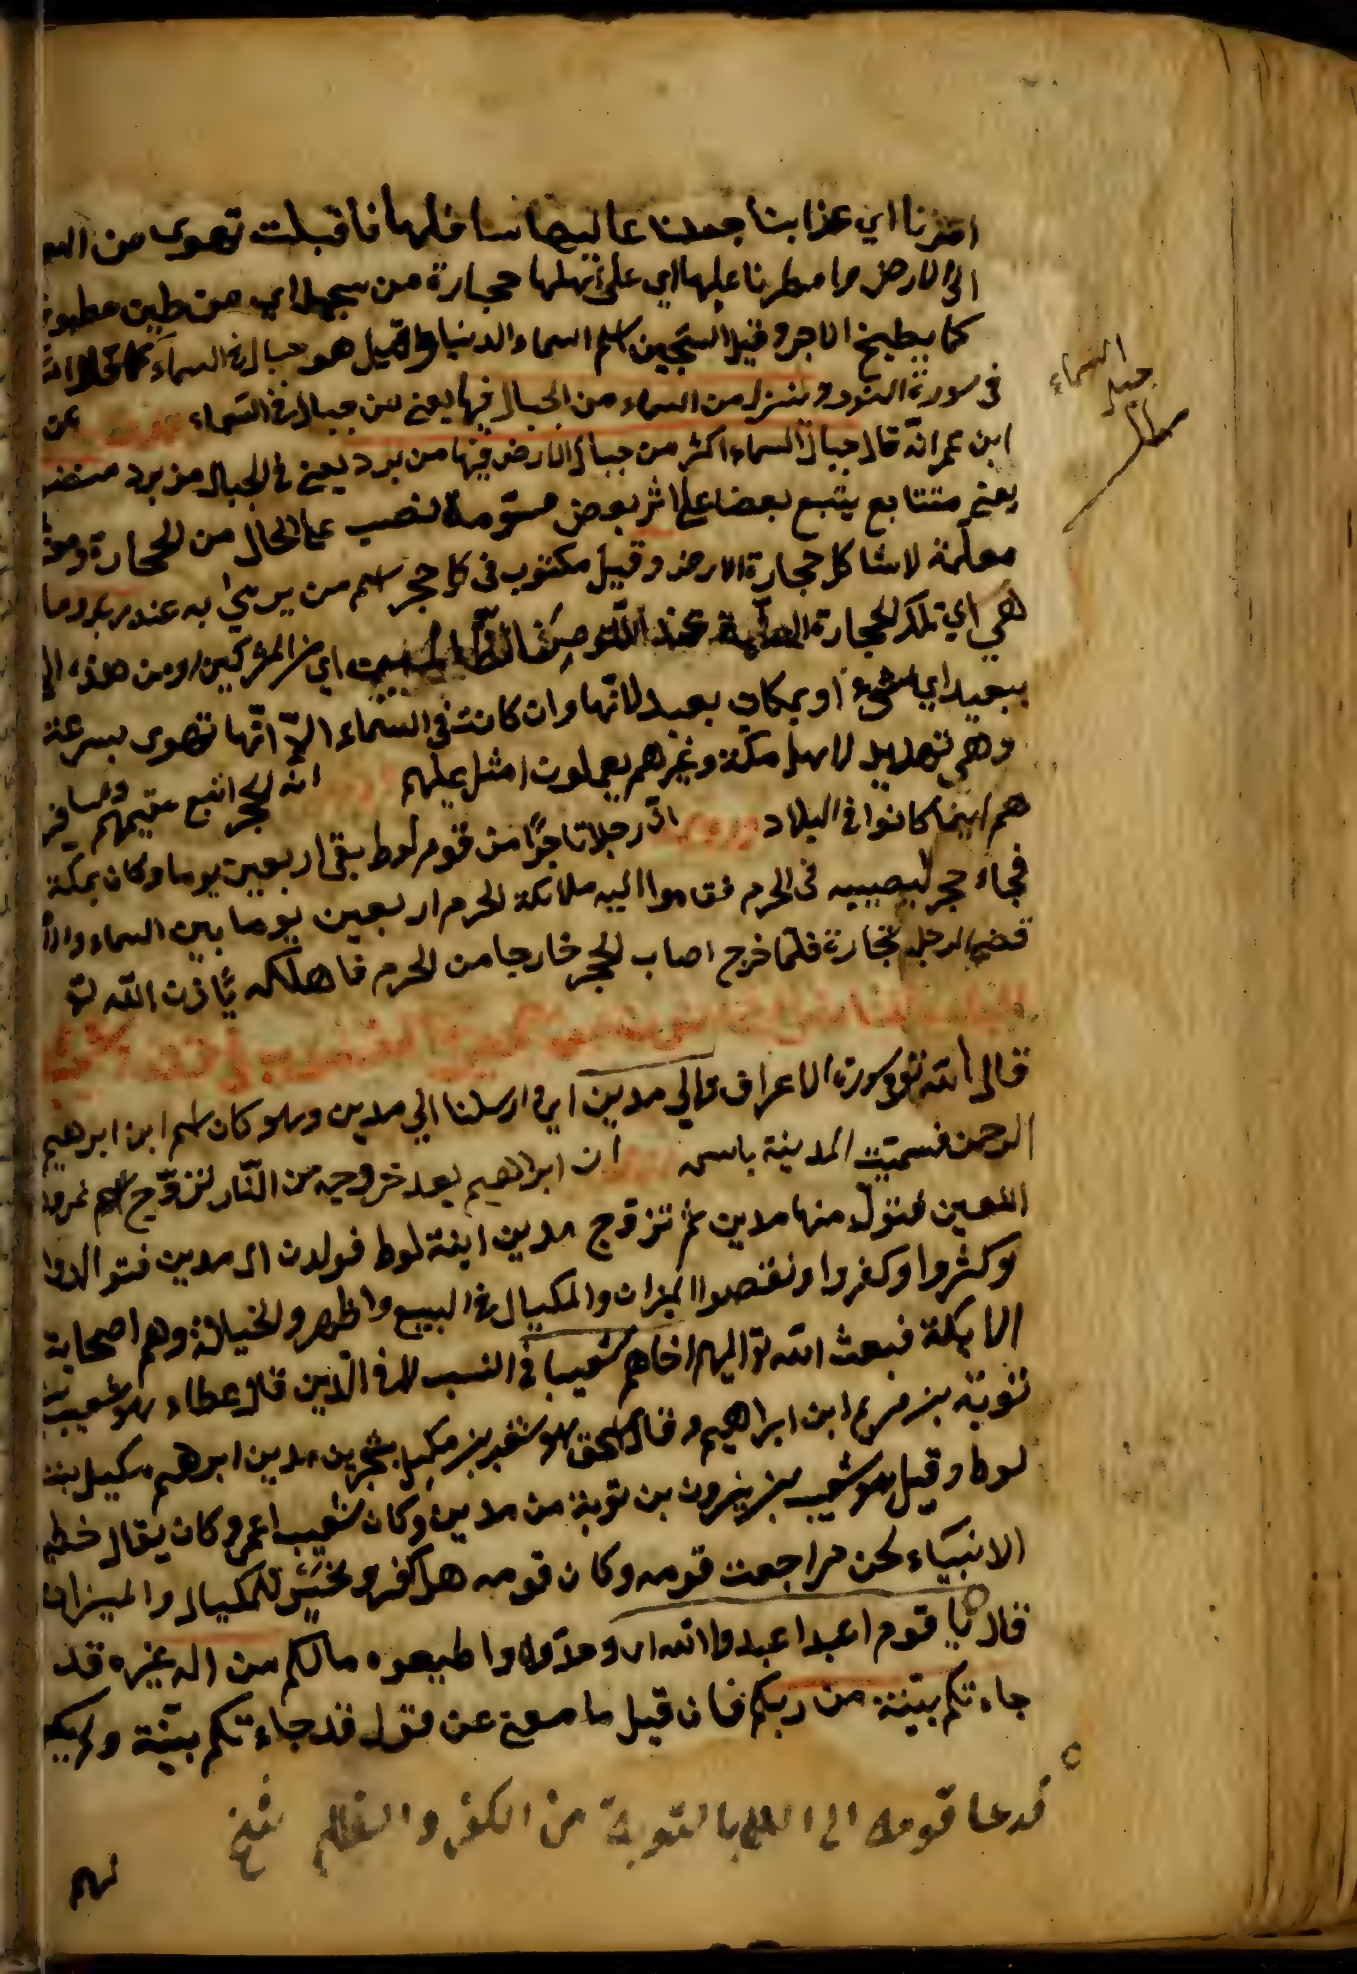 امرنا اي عذابنا جعلنا عاليها سافلها فاقبلت تهوى من السم
الى الارض وامطرنا عليها اي على اهلها حجارة من سجيل اي من طين مطبوخ
كما يطبخ الاجر وقيل السجين اسم السماء الدنيا وقيل هو جبال في السماء كما قال الله
في سورة النور وننزل من السماء من الجبال فيها يعني من جبال في السماء عن
ابن عمر انه قال جبال السماء اكثر من جبال الارض فيها من برد يعني في الجبال من برد منضود
يعني متتابع يتبع بعضا على اثر بعض مسومة نصب على الحال من الحجارة
معلمة لا تشاكل حجارة الارض وقيل مكتوب في كل حجر اسم من يرمى به عند ربك وما
هي اي تلك الحجارة عند الله من الظالمين اي من المشركين ومن هذه
ببعيد اي بشيء او بمكان بعيد لانها وان كانت في السماء الا انها تهوى بسرعة
وهي تهديد لاهل مكة وغيرهم يعملون امثل عملهم انه الحجر اتبع مقيمهم ومسافر
هم اينما كانوا في البلاد ان رجلا تاجرا من قوم لوط بقى اربعين يوما وكان بمكة
فجاء حجر ليصيبه في الحرم فقاموا اليه ملائكة الحرم اربعين يوما بين السماء والا
قضى الرجل تجارة فلما خرج اصاب الحجر خارجا من الحرم فاهلكه باذن الله تع
قال الله تع في سورة الاعراف والى مدين اي وارسلنا الى مدين وهو كان اسم ابن ابرهيم
الرحمن فسميت المدينة باسمه ان ابراهيم بعد خروجه من النار تزوج
اللعين فتولد منها مدين ثم تزوج مدين ابنة لوط فولدت ال مدين فتوالدوا
وكثروا وكفروا ونقصوا الميزان والمكيال في البيع واظهروا الخيانة وهم اصحاب
الايكة فبعث الله تع اليهم اخاهم شعيبا في النسب لا في الدين قال عطاء هو شعيب
توبة بن ابن ابراهيم وقال اسحق هو شعيب بن مكيل بن يشجر بن مدين ابرهيم مكيل بنت
لوط وقيل هو شعيب بن يثرون بن توبة من مدين وكان شعيب اعمى وكان يقال خطيب
الانبياء لحسن مراجعت قومه وكان قومه اهل كفر وبخس للمكيال والميزان
قال يا قوم اعبدوا الله اي وحدوه واطيعوه مالكم من اله غيره قد
جاءتكم بينة من ربكم فان قيل ما معنى عن قول قد جاءتكم بينة ولم يكن
فدعا قومه الى الله بالتوبة من الكفر والظلم نسخ
لهم
جبل السماء
مطلب